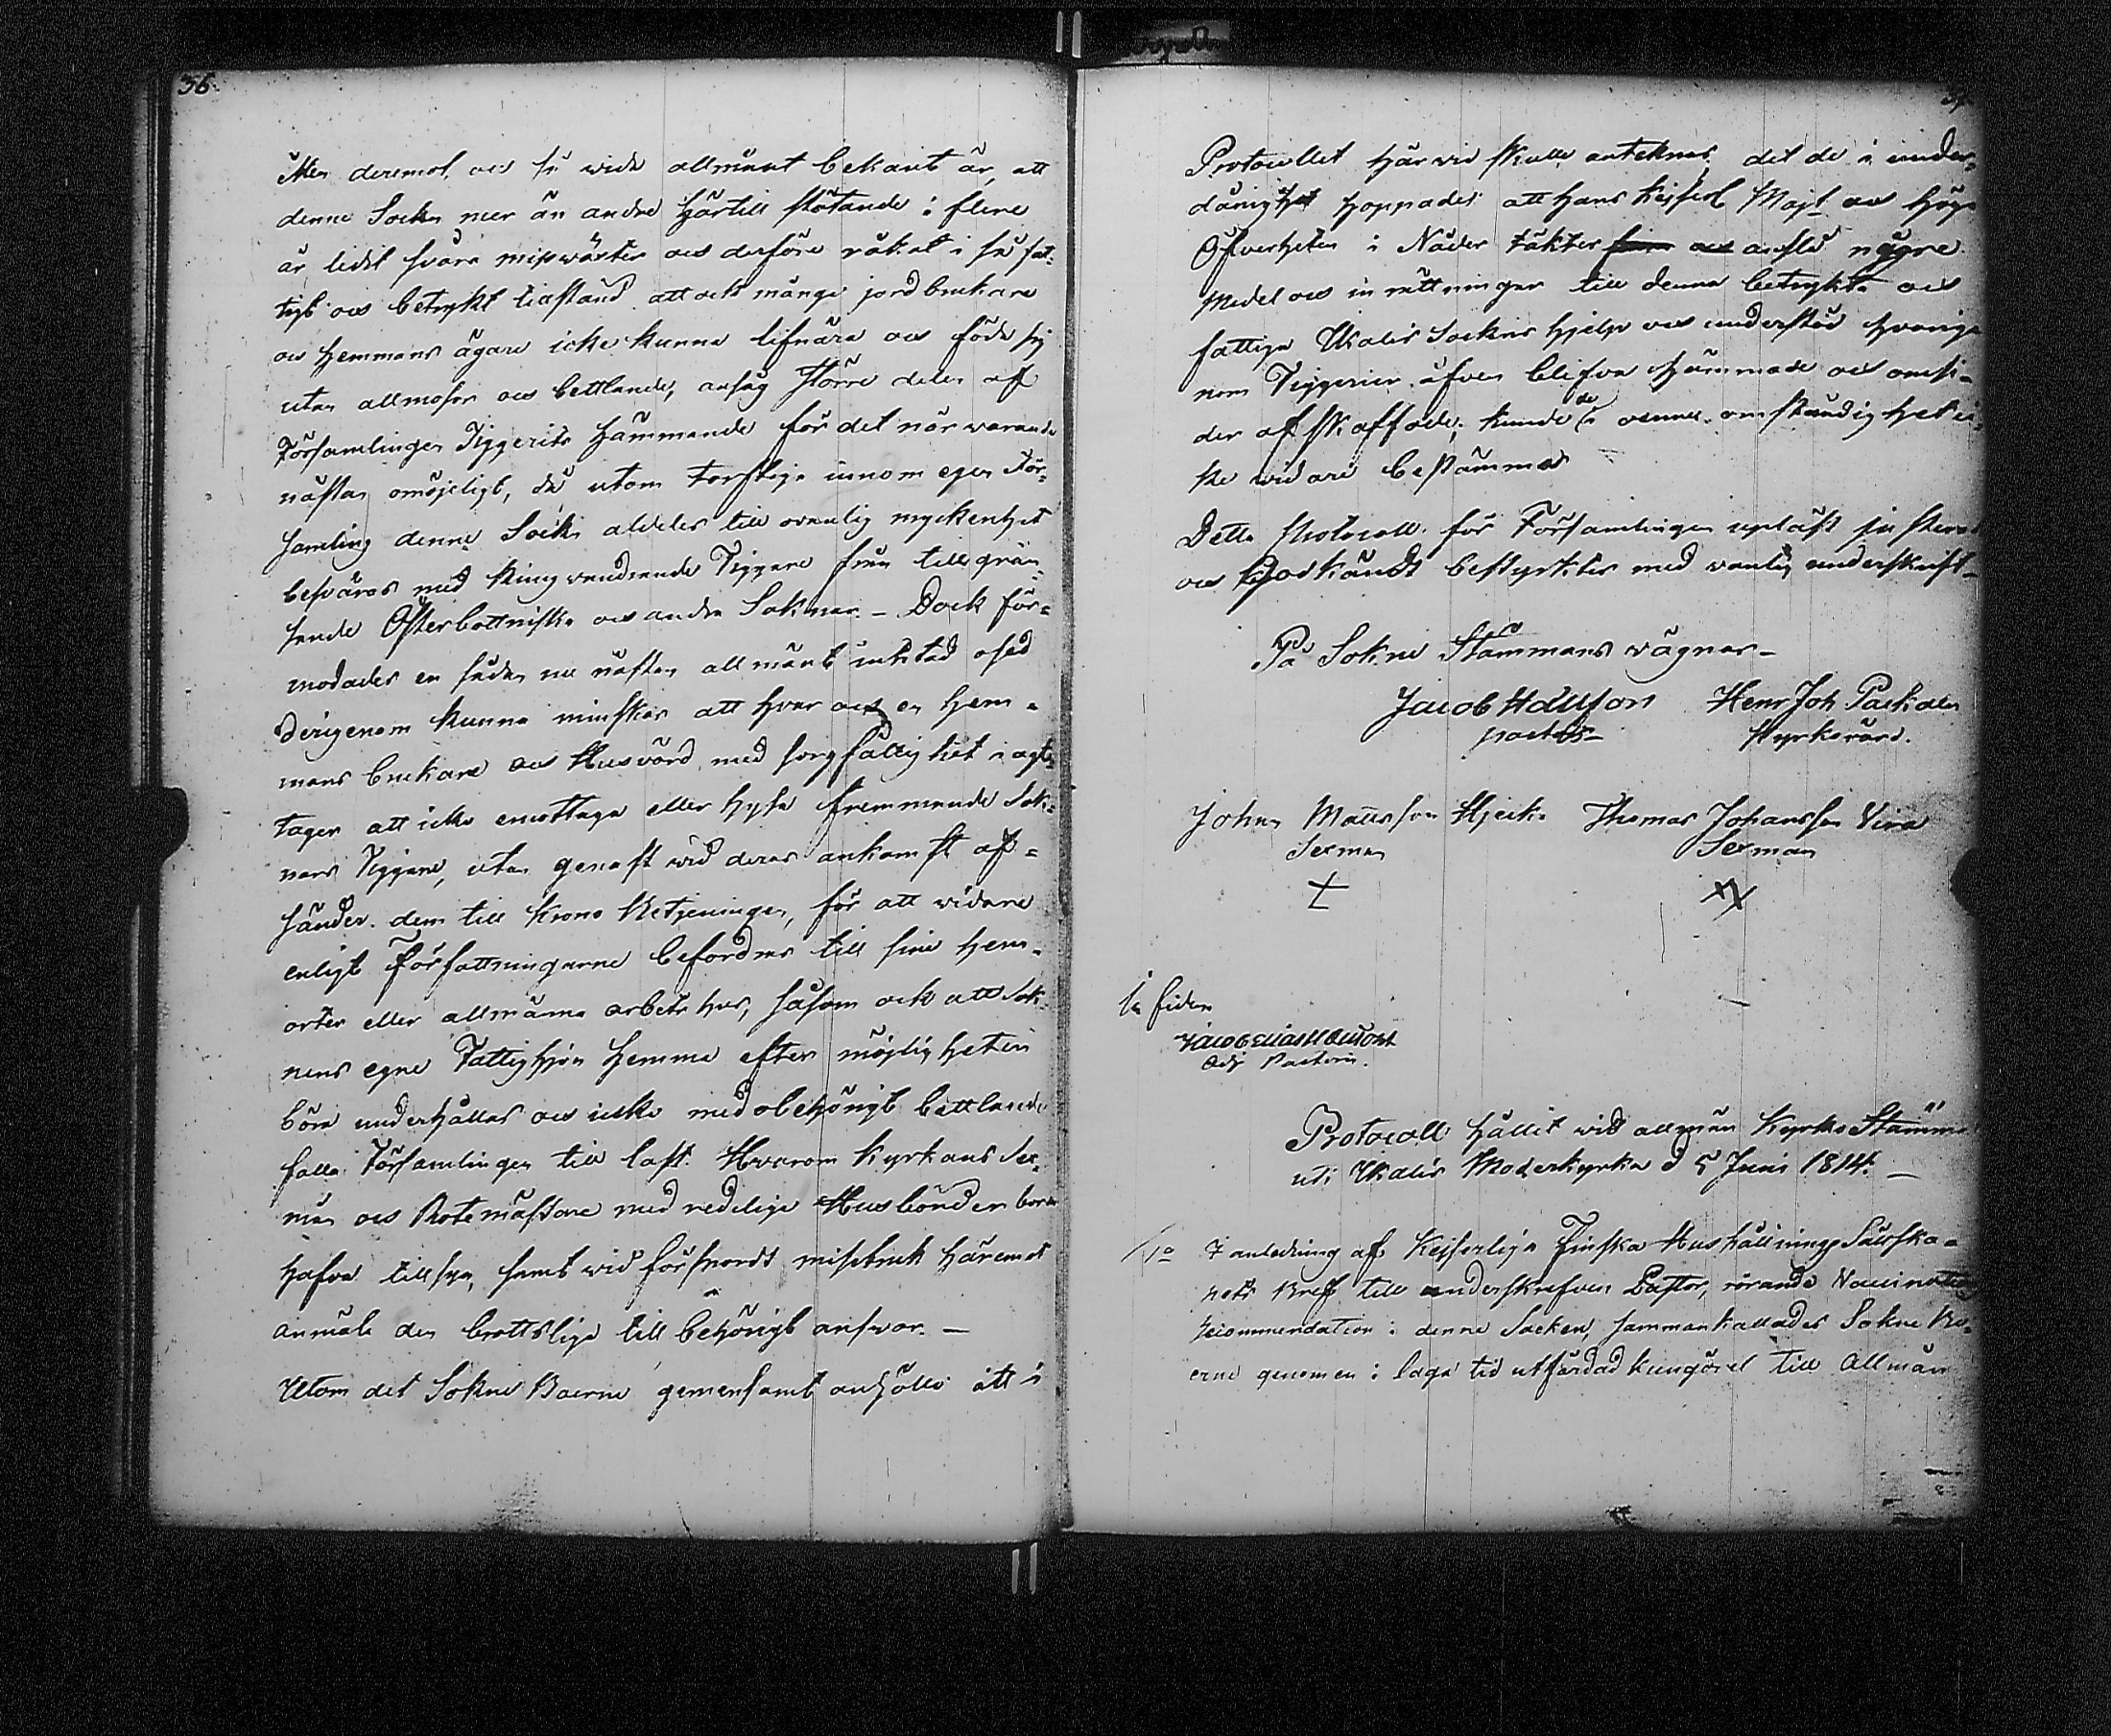 36.
Men deremot, och så wida allmänt bekant är, att
denne Sockn mer än andre härtill stötande i flere
år lidit svåra missväxter och derföre råkat i så fat-
tigt och betrykt tillstånd att ock månge jordbrukare
och hemmans ägare icke kunna lifnära och föda sig
utan allmosor och bettlande, ansåg större delen af
Församlingen Tiggeriets hämmande för det närwarande
nästan omöjeligt, då utom torftige innom egen För-
samling denne Sockn aldeles till ovanlig myckenhet
besväras med kringvandrande Tiggare från tillgrän-
sande Österbottniska och andra Soknar. – Dock för-
modades en sådan nu nästan allmänt inritad osed
derigenom kunna minskas att hvar och en hem-
mans brukare och Husvärd med sorgfällighet i agt-
tager att icke emottaga eller hysa fremmande Sok-
nars Tiggare, utan genast wid deras ankomst af-
sänder dem till Krono Betjeningen, för att widare
enligt Författningarne befordras till sine hem-
orter eller allmänna arbetshus, såsom ock att Sok-
nens egne Fattighjon hemma efter möjligheten
böra underhållas och icke med obehörigt bettlande
falla Församlingen till last. Hvarom Kyrkans Sex-
män och Rotemästare med redelige Husbönder borde
hafva tillsyn, samt wid försport missbruk häremot
anmäla den brottslige till behörigt answar. —
Utom det Sokne Boerne gemensamt anhöllo att i
37
Protocollet härwid skulle anteknas det de i under-
dånighet hoppades att Hans Kejserl Majt och höga
Öfverheten i Nåder täktes anslå någre
medel och inrättningar till denna betrykta och
fattiga Ikalis Sockns hjelp och understöd hvarige-
nom Tiggerier äfven blifva hämmade och omsi-
der afskaffade; kunde de i denne omständighet ic-
ke widare bestämmas
Detta Protocoll för Församlingen upläst justerad
och Godkändt bestyrktes med vanlig underskrift –
På Sokne Stämmans wägnar –
Jacob Hallson Henr Joh Paskalen
pastor – Kyrkovärd.
Johan Mattsson Thomas Johansson Vira
Sexman Sexman
In fidem
Adj Pastoris.
Protocoll hållit wid allmän Kyrko Stämma
uti Ikalis Moderkyrka d 5 Junii 1814. —
1o I anledning af Kejserliga Finska Hushållnings Sällska-
pets Bref till underskrefven Pastor, rörande Vaccinations
recommendation i denne Socken, sammankallades Sokne Bo-
erne genom en i laga tid utfärdad kungörel till Allmän